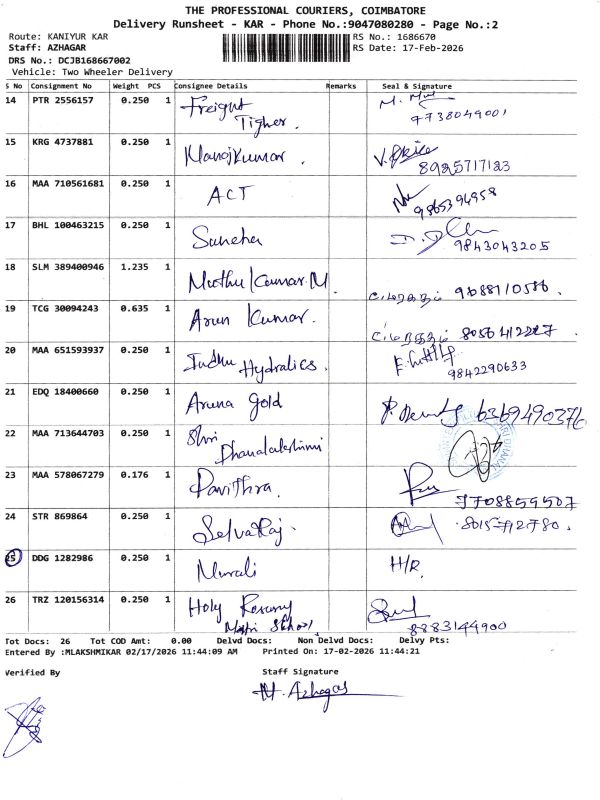 THE PROFESSIONAL COURIERS, COIMBATORE
Delivery Runsheet - KAR - Phone No.:9047080280 - Page No.:2
Route: KANIYUR KAR RS No.: 1686670
Staff: AZHAGAR RS Date: 17-Feb-2026
DRS No.: DCJB168667002
Vehicle: Two Wheeler Delivery
S No Consignment No Weight PCS Consignee Details Remarks Seal & Signature
14 PTR 2556157 0.250 1 Freight
Tigher. 7738049001
15 KRG 4737881 0.250 1 Manojkumar. 8925717123
16 MAA 710561681 0.250 1 ACT 9865394958
17 BHL 100463215 0.250 1 Suneha 9843043205
18 SLM 389400946 1.235 1 Muthu Kumar.M 9688110586.
19 TCG 30094243 0.635 1 Arun Kumar.
20 MAA 651593937 0.250 1 Indhu Hydralics. 9842290633
21 EDQ 18400660 0.250 1 Aruna gold 6369490376
22 MAA 713644703 0.250 1 Shri
Dhanalakshmi
23 MAA 578067279 0.176 1 Pavithra. 7708859507
24 STR 869864 0.250 1 Selvaraj. 8015712780.
25 DDG 1282986 0.250 1 Murali H/R.
26 TRZ 120156314 0.250 1 Holy Rosary
Matri School 8883144900
Tot Docs: 26 Tot COD Amt: 0.00 Delvd Docs: Non Delvd Docs: Delvy Pts:
Entered By :MLAKSHMIKAR 02/17/2026 11:44:09 AM Printed On: 17-02-2026 11:44:21
Verified By Staff Signature
M. Azhagar